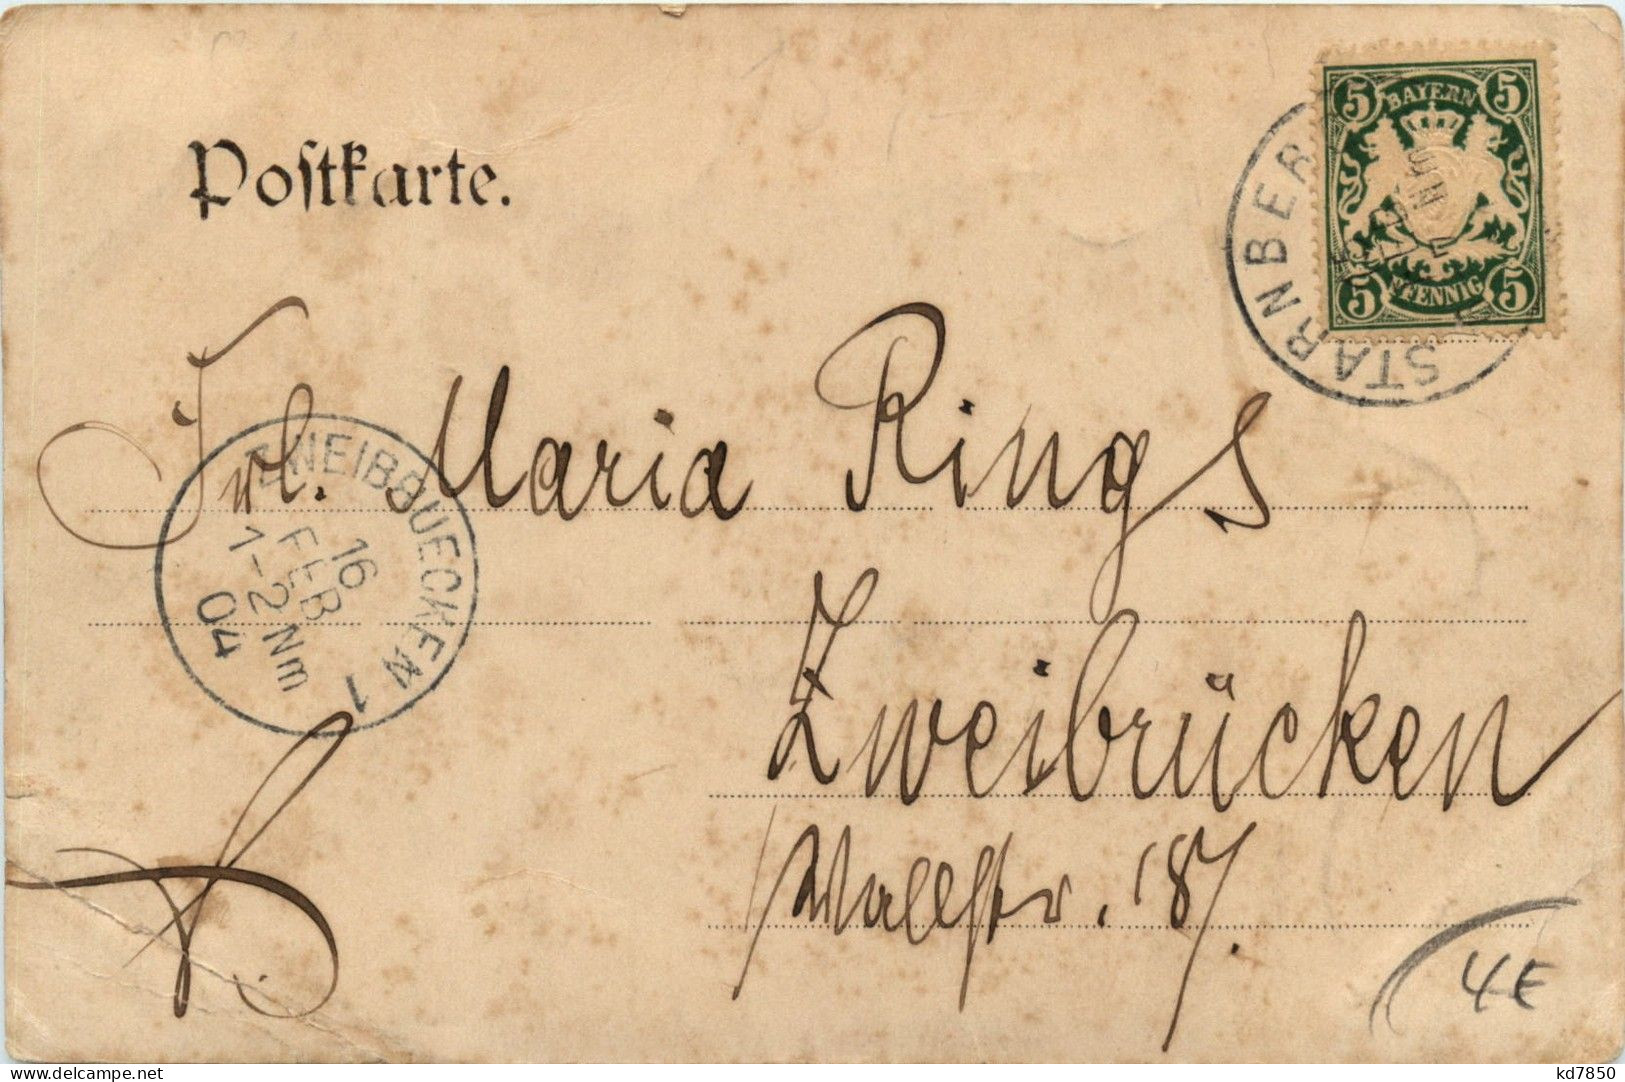 Postkarte.
5 BAYERN 5
5 PFENNIG 5
STARNBER
Frl. Maria Rings
ZWEIBRUECKEN 1
16
FEB
1-2 Nm
04
Zweibrücken
Wallstr. 87.
4E
delcampe.net
kd7850